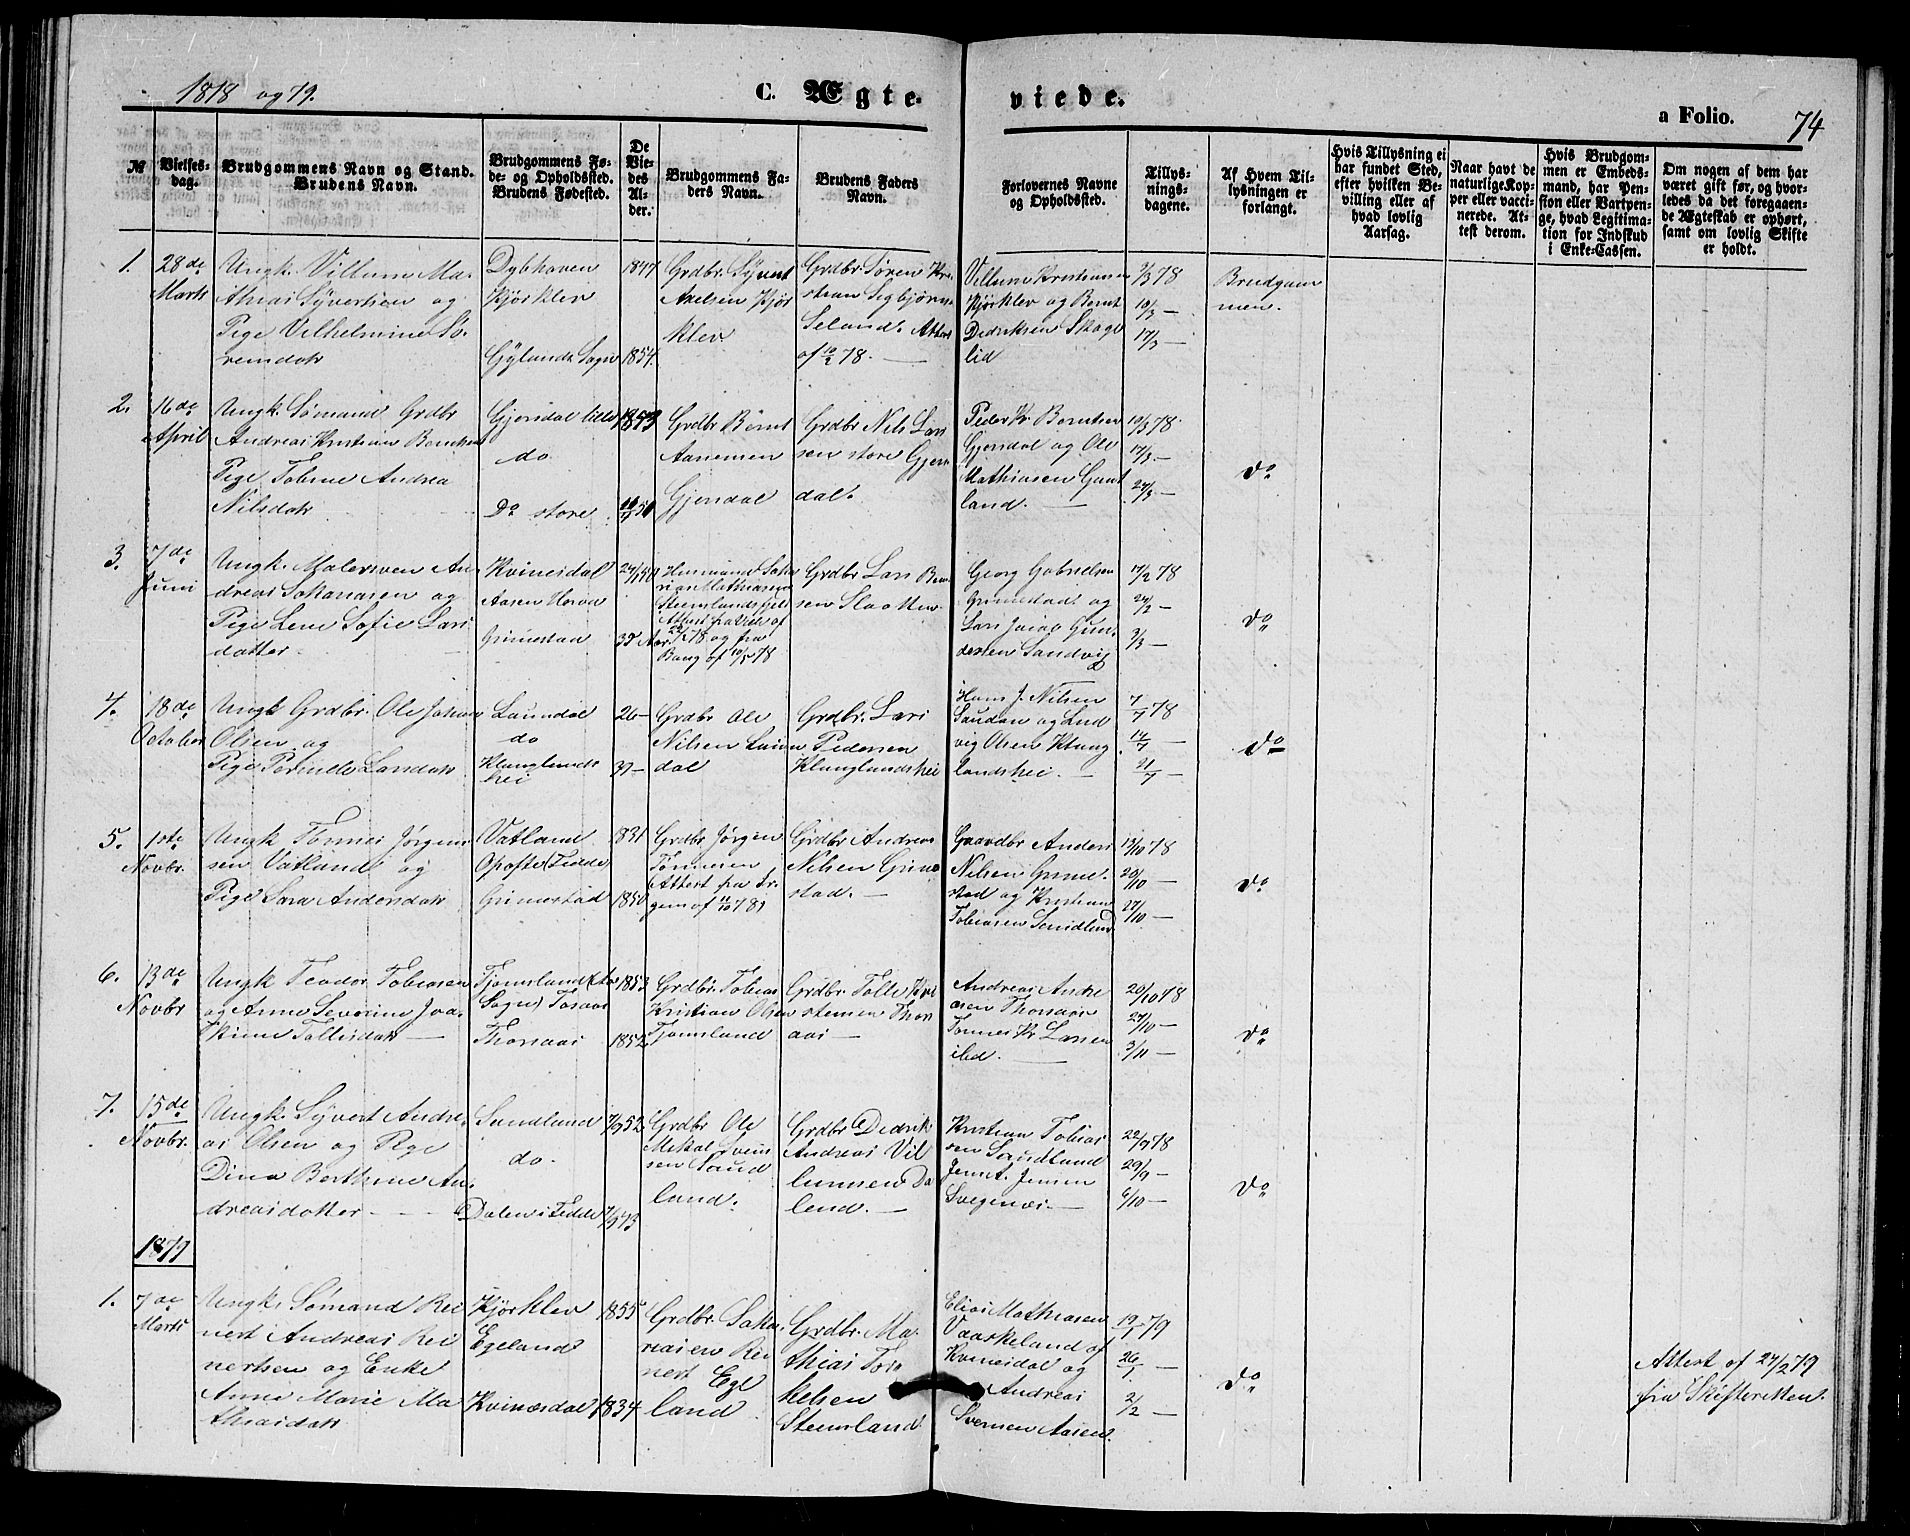 1878 og 79.
C. Ægte
viede.
a Folio. 74
№
Vielses-
dag.
Brudgommens Navn og Stand.
Brudens Navn.
Brudgommens Fø-
de- og Opholdssted.
Brudens Fødested.
De
Vie-
des
Al-
der.
Brudgommens Fa-
ders Navn.
Brudens Faders
Navn.
Forlovernes Navne
og Opholdssted.
Tillys-
nings-
dagene.
Af Hvem Til-
lysningen er
forlangt.
Hvis Tillysning ei
har fundet Sted,
efter hvilken Be-
villing eller af
hvad lovlig
Aarsag.
Naar havt de
naturlige Kop-
per eller vacci-
nerede. At-
test derom.
Hvis Brudgom-
men er Embeds-
mand, har Pen-
sion eller Vartpen-
ge, hvad Legitima-
tion for Indskud
i Enke-Cassen.
Om nogen af dem har
været gift før, og hvor-
ledes da det foregaaen-
de Ægteskab er ophørt,
samt om lovlig Skifte
er holdt.
1.
28de
Marts
Ungk. Villum Ma-
thias Syvertsen og
Pige Vilhelmine Sø-
rensdatr
Dybhaven
Kjørklev
Gylands Sogn
1847
1854.
Grdbr. Syvert
Axelsen Kjør
klev
Grdbr. Søren Kri
stian Segbjørns
Seland. Attest
af 10/2 78.
Villum Kristiansen
Kjørklev og Bernt
Dedriksen Skage
lid
3/3 78
10/3 —
17/3 —
Brudgom
men.
2.
16de
April
Ungk. Sømand Grdbr
Andreas Kristian Berntsen
Pige Tobine Andrea
Nilsdatr
Gjersdal lille
do
Do store
1853
Grdbr Bernt
Aanensen
Gjersdal
Grdbr Nils Lar
sen store Gjers
dal.
Peder Kr. Berntsen
Gjersdal og Ole
Mathiasen
land.
10/3 78
17/3 —
24/3 —
Do
3.
7de
Juni
Ungk. Malersven An-
dreas Sakariasen og
Pige Lene Sofie Lars
datter
Kvinesdal
Aasen Herad
Grimestad
35 Aar
Husmand Saka
rias Mathiasen
Grdbr Lars Bern
sen Slaatten
Georg Gabrielsen
Grimestad og
Lars Jakob Gun
dersen Sandvig
17/2 78
24/2 —
3/3 —
Do
4.
18de
October
Ungk Grdbr. Ole Johan
Olsen og
Pige Pernille Larsdatr
Laundal
do
Klunglands
hei
26 —
37 —
Grdbr Ole
Nilsen Laun
dal
Grdbr. Lars
Pedersen
Klunglandshei
Hans J. Nilsen
Saudan og Lud
vig Olsen Klung
landshei.
7/7 78
14/7 —
21/7 —
Do
5.
1ste
Novbr.
Ungk Tønnes Jørgen-
sen Vatland og
Pige Sara Andersdatr
Vatland
Opofte (Fedde
Grimestad
1831
1850
Grdbr Jørgen
Tønnesen
Attest fra
Grdbr Andreas
Nilsen Grime
stad.
Gaardbr Anders
Nilsen Grime-
stad og Kristian
Tobiasen Sandland
13/10 78
20/10 —
27/10 —
Do
6.
13de
Novbr
Ungk Teodor Tobiasen
og Anne Severine Joa-
kime Tollisdatr
Tjomsland
Sogn) Tosaas
Thosaas
1853
1852
Grdbr. Tobias
Kristian Olsen
Tjomsland
Grdbr. Tolle Tor
stensen Thos
aas
Andreas Andre
asen Thosaas
Tønnes Kr Larsen
ibd.
20/10 78
27/10 —
3/11 —
Do
7.
15de
Novbr.
Ungk. Syvert Andre-
as Olsen og Pige
Dina Berthine An-
dreasdotter
Sandland
do.
Dalen i Fedde
7/9 52
Grdbr Ole
Mikal Svend
sen Sand
land.
Grdbr Dedrik
Andreas Vil
lumsen Da
lend.
Kristian Tobias
sen Sandland
Jens A. Jensen
Svegenes.
22/9 78
29/9 —
6/10 —
Do
1879
1.
7de
Marts
Ungk. Sømand Rei
nert Andreas Rei
nertsen og Enke
Anne Marie Ma
thiasdatr
Kjørklev
Egeland
Kvinesdal
1855
1834
Grdbr. Saka-
riasen Rei
nert Ege
land
Grdbr. Ma-
thias Tor
kelsen
Steensland
Elias Mathiasen
Vaaskeland af
Kvinesdal og
Andreas
Svensen Aasen.
19/1 79
26/1 —
2/2 —
Do
Attest af 24/2 79
fra Skifteretten.